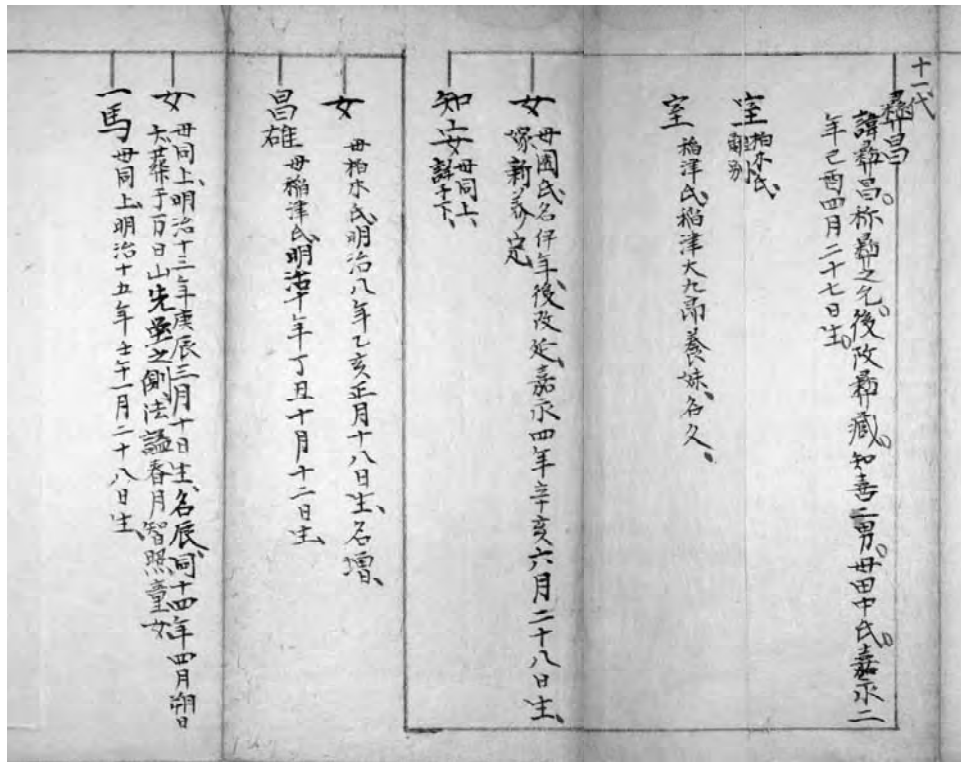 十一代
彜昌
諱彜昌、称彜之允、後改彜蔵、知善二男、母田中氏、嘉永二
年己酉四月二十七日生、
室
柏木氏、
離別
室
稲津氏、稲津大九郎養妹、名久、
女
母園氏、名伊年、後改延、嘉永四年辛亥六月二十八日生、
嫁新
知安
母同上、
譜于下、
女
母柏木氏、明治八年乙亥正月十八日生、名増、
昌雄
母稲津氏、明治十年丁丑十月十二日生、
女
母同上、明治十三年庚辰三月十日生、名辰、同十四年四月朔日
夭、葬于万日山先塋之側、法諡春月智照童女
一馬
母同上、明治十五年壬午一月二十八日生、